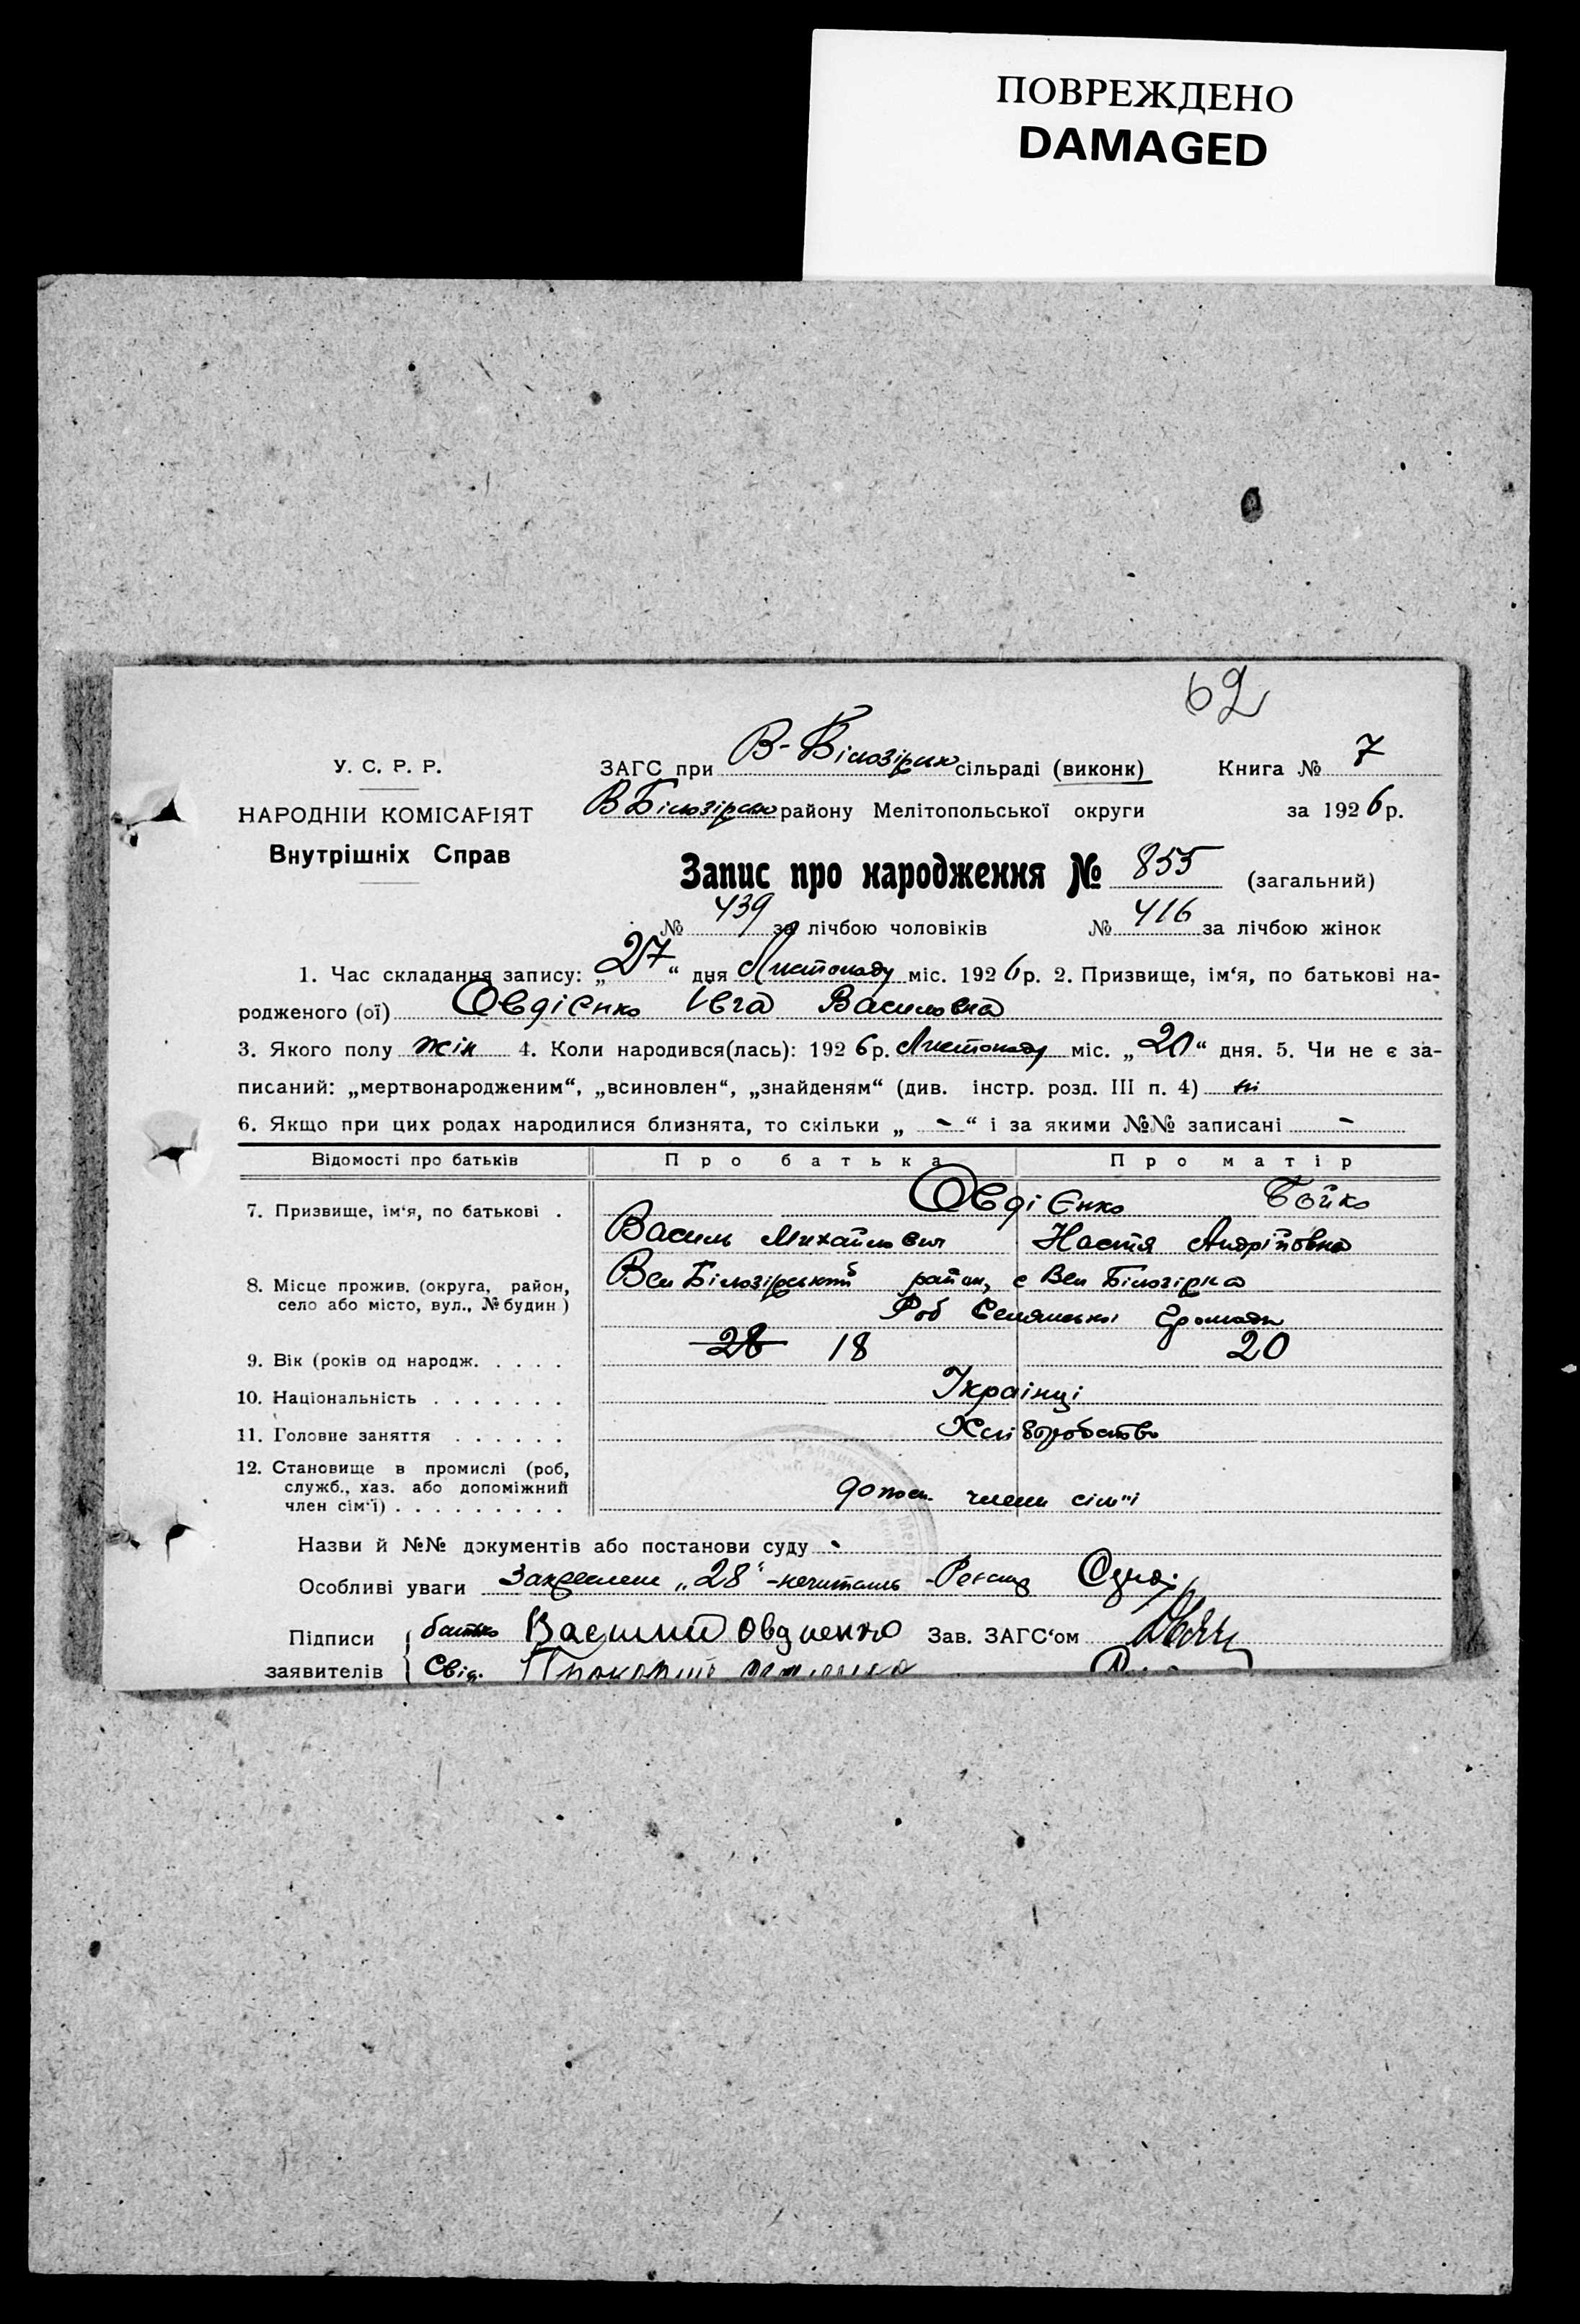 ПОВРЕЖДЕНО
DAMAGED
62
У. С. Р. Р.
НАРОДНІЙ КОМІСАРІЯТ
Внутрішніх Справ
ЗАГС при В-Білозірск сільраді (виконк) Книга № 7
В Білозірськ району Мелітопольської округи за 1926 р.
Запис про народження № 855 (загальний)
№ 439 за лічбою чоловіків № 416 за лічбою жінок
1. Час складання запису: „27“ дня Листопаду міс. 1926 р. 2. Призвище, ім‘я, по батькові на-
родженого (ої) Овдієнко Ївга Василовна
3. Якого полу жін 4. Коли народився(лась): 1926 р. Листопаду міс. „20“ дня. 5. Чи не є за-
писаний: „мертвонародженим“, „всиновлен“, „знайденям“ (див. інстр. розд. III п. 4) ні
6. Якщо при цих родах народилися близнята, то скільки „ - “ і за якими №№ записані -
Відомості про батьків Про батька Про матір
7. Призвище, ім‘я, по батькові . Овдієнко Бойко
Василь Михайлович Настя Андріївна
8. Місце прожив. (округа, район,
село або місто, вул., № будин)
Вел Білозірський район, с Вел Білозірка
Роб Селянської Громади
9. Вік (років од народж. . . . . 28 18 20
10. Національність . . . . . . . Українці
11. Головне заняття . . . . . . Хліборобство
12. Становище в промислі (роб,
служб., хаз. або допоміжний
член сім‘ї) . . . . . . . . . допом. члени сім"ї
Назви й №№ документів або постанови суду -
Особливі уваги Закреслене „28“ - нечитать
Підписи заявителів
батько Василий Овдиенко Зав. ЗАГС‘ом
Свід.